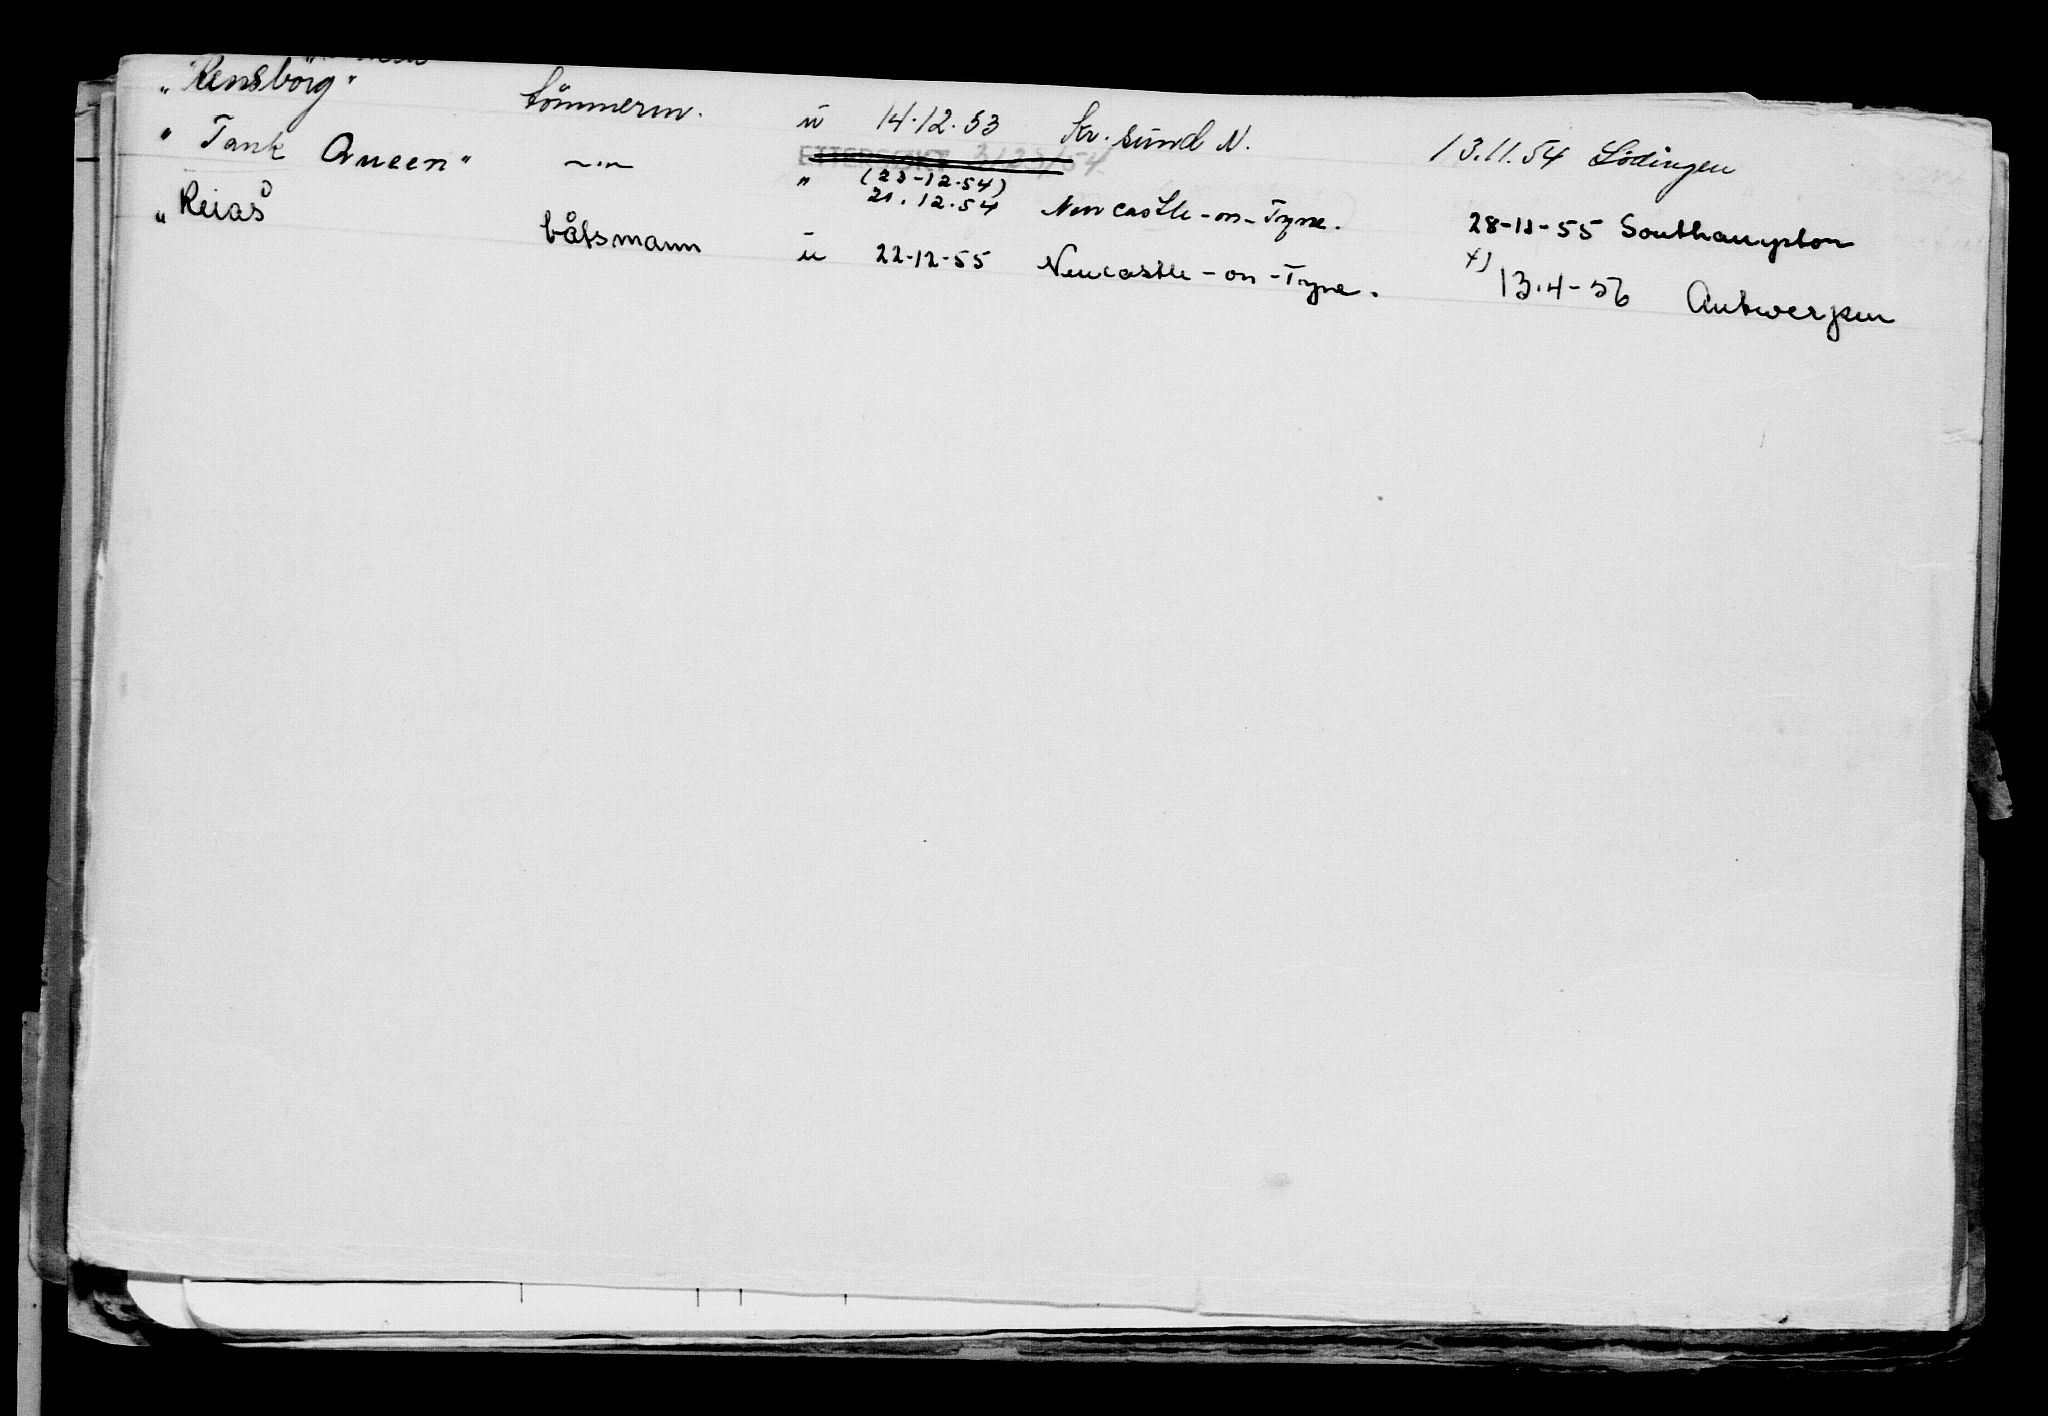 „Rensborg" tömmerm. u 14.12.53 Kr. sund N. 13.11.54 Lödingen
ETTERSØKT 3/23/54
" Tank Queen" —"— " (23-12-54)
21.12.54 Newcastle-on-Tyne. 28-11-55 Southampton
„Reiaś båtsmann u 22-12-55 Newcastle-on-Tyne. x) 13.4-56 Antwerpen